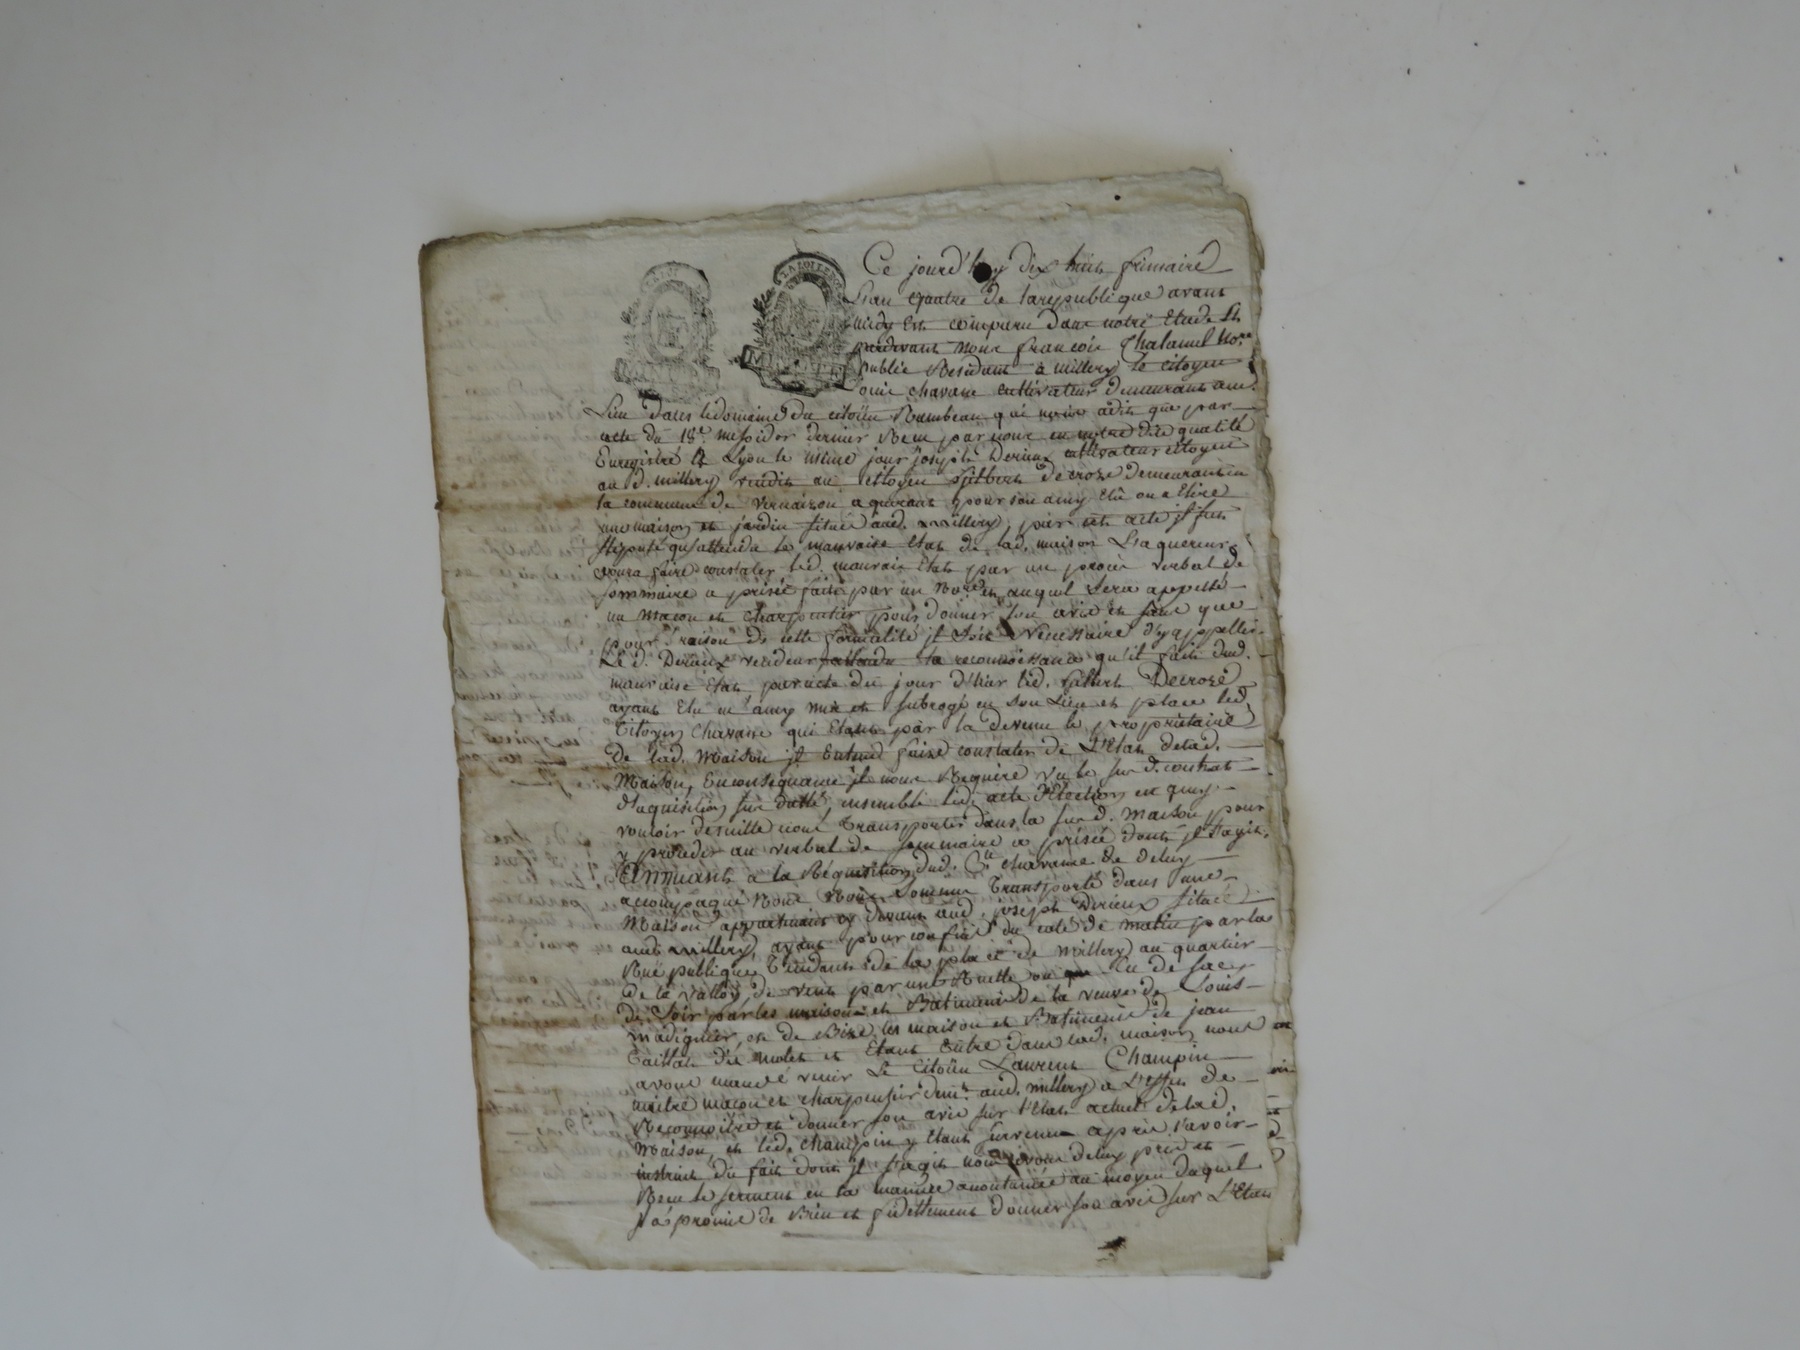 LA LOI
LA LOI LE ROI
Ce jourd'huy dix huit frimaire
L'an quatre de la republique avant
midy Est comparu dans notre Etude Et
pardevant nous francois Chalamel No.re
public Residant a millery le citoyen
Louis chavane cultivateur demeurant aud.
Lieu dans le domaine du citoÿen Rambeau qui nous a dit que par
acte du 18.e messidor dernier Recu par nous en notre dite qualité
Enregistré a Lyon le même jour joseph Derieux cultivateur citoyen
aud. millery vendit au citoyen filbert decroze demeurant en
la commune de vernaison aquerant pour son amy Elu ou a Elire
une maison et jardin situés aud. millery, par cet acte jl fut
stipulé qu'attendu le mauvais Etat de lad. maison L'aquereur
poura faire constater led. mauvais Etat par un procès verbal de
sommaire a prisée faite par un No.re auquel sera appellé
un macon et charpentier pour donner son avis et sans que
pour raison de cette formalité jl soit Necessaire d'y appeller
Le d. Derieux vendeur attendu la reconnoissance qu'il fait dud.
mauvais Etat, par acte du jour d'hier led. filbert Decroze
ayant Elu en amy mis et subrogé en son Lieu et place led.
Citoyen Chavane qui Etant par la devenu le propriétaire
de lad. Maison jl Entend faire constater de L'Etat de lad.
Maison, En consequance jl nous Requiere vu le sus d. contrat
d'aquisition sus datté, ensemble led. acte d'Election en amy
vouloir de suitte nous Transporter dans la sus d. maison pour
y proceder au verbal de sommaire a prisée dont jl s'agit.
a la Réquisition dud. C.en chavanne & de deluy
accompagné Nous Nous sommes Transporté dans une
Maison appartenant cy devant aud. joseph Derieux située
aud. millery, ayant pour confins du coté de matin par la
Rue publique Tendant de la place de millery au quartier
de la vallois, de vent par une Ruelle ou cu de sac,
de Soir par les maisons et Batiments de la veuve de Louis
madignier, et de Bize les maison et Batiments de jean
et Etant Entré dans lad. maison nous
avons mandé venir Le Citoÿen Laurent Champin
maitre macon et charpentier dem.t aud. millery a L'effet de
Reconnoitre et donner son avis sur l'Etat actuel de lad.
Maison, et led. Champin y Etant survenu après l'avoir
instruit du fait dont jl s'agit nous avons deluy pris et
Recu le serment en la maniere acoutumée au moyen duquel
jl a promis de Bien et fidellement donner son avis sur L'Etat